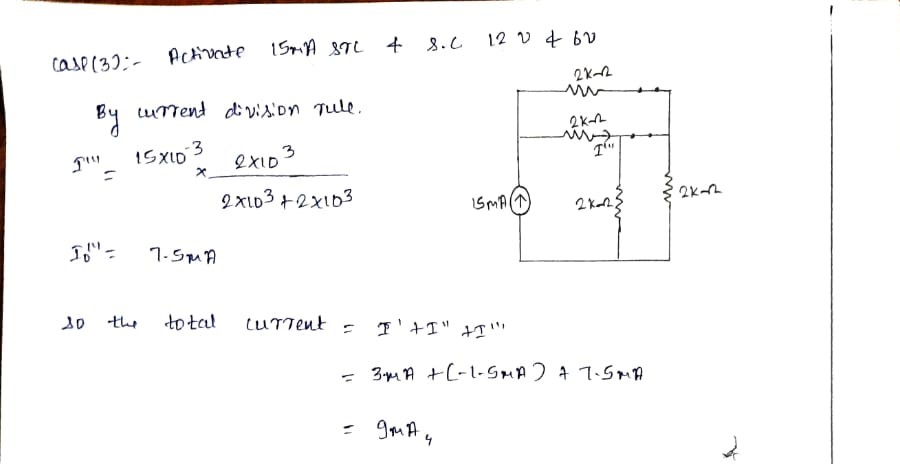 Case(3):- Activate 15mA STC & S.C 12 V & 6V
By current division rule.
I''' = 15×10^-3 × 2×10^3 / 2×10^3 + 2×10^3
I0''' = 7.5mA
2K-Ω
2K-Ω
I'''
15mA
2K-Ω
2K-Ω
so the total current = I' + I'' + I'''
= 3mA + (-1.5mA) + 7.5mA
= 9mA